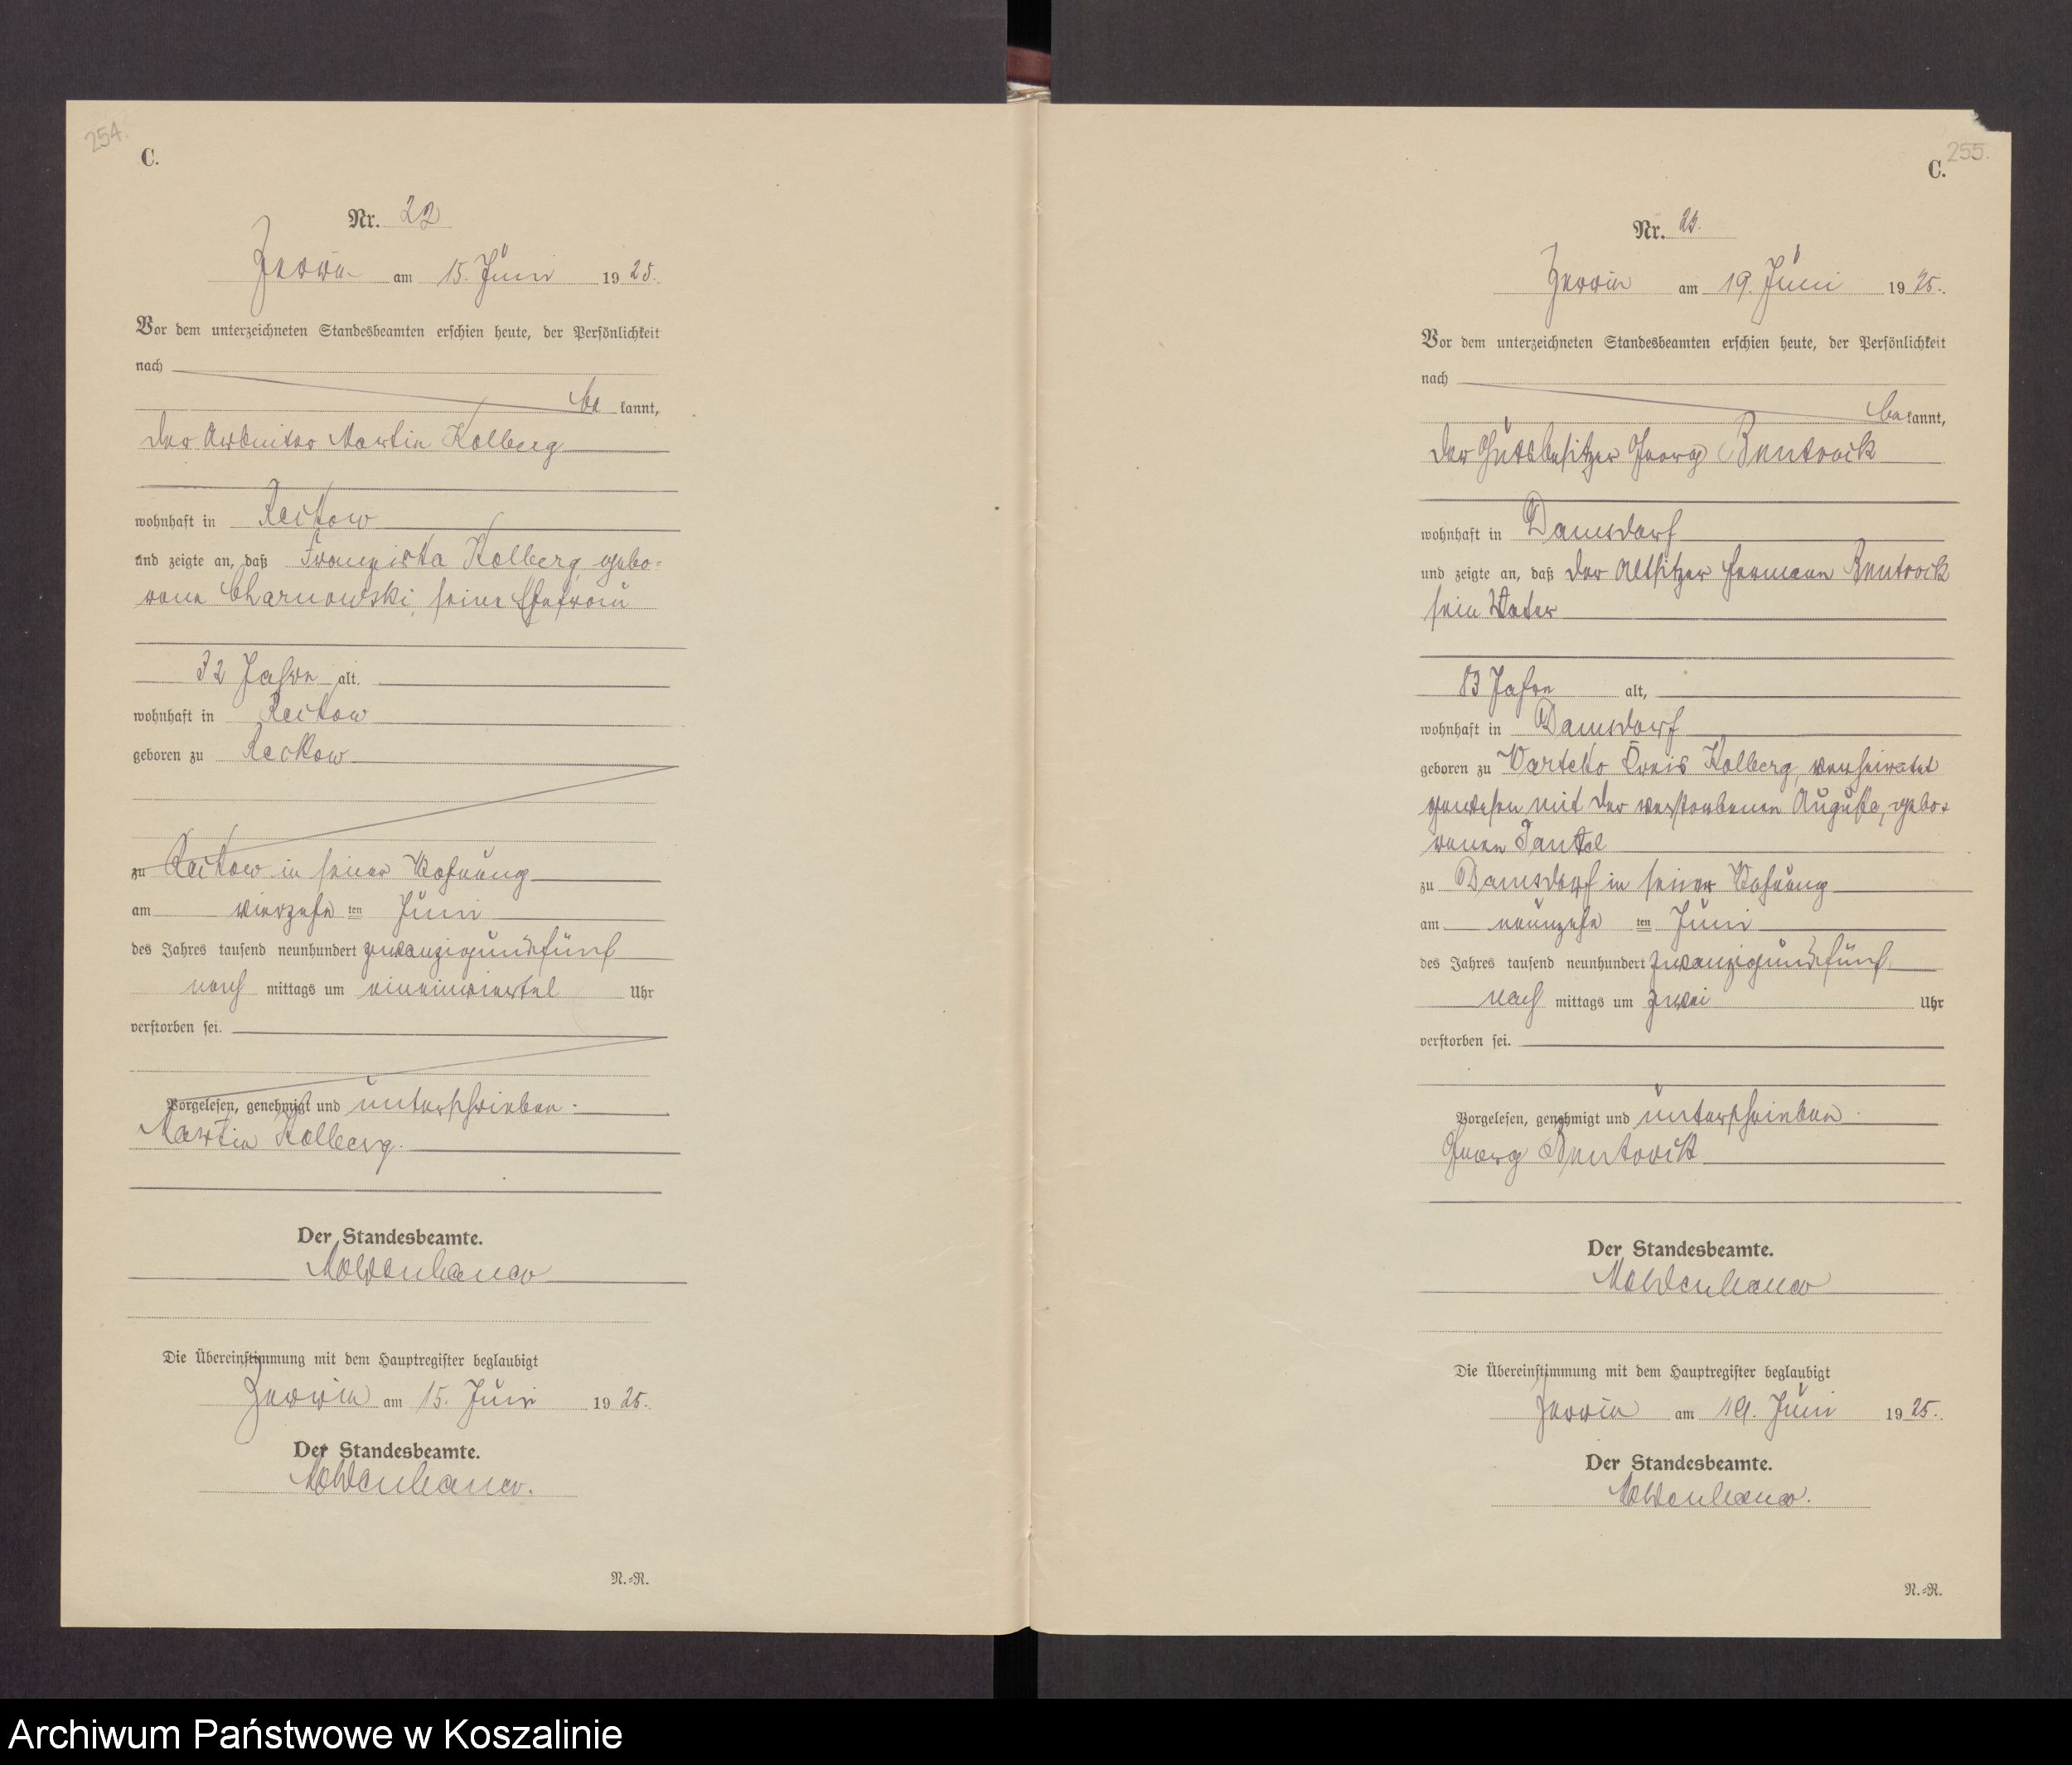 254.
C.
Nr. 22
Zerrin am 15. Juni 1925.
Vor dem unterzeichneten Standesbeamten erschien heute, der Persönlichkeit
nach
be kannt,
der Arbeiter Martin Kolberg
wohnhaft in Reckow
und zeigte an, daß Franziska Kolberg, gebo-
rene Charnowski, seine Ehefrau
32 Jahre alt.
wohnhaft in Reckow
geboren zu Reckow
zu Reckow in seiner Wohnung
am vierzehn ten Juni
des Jahres tausend neunhundert zwanzigundfünf
nach mittags um eineinviertel Uhr
verstorben sei.
Vorgelesen, genehmigt und unterschrieben.
Martin Kolberg.
Der Standesbeamte.
Moldenhauer
Die Übereinstimmung mit dem Hauptregister beglaubigt
Zerrin am 15. Juni 1925.
Der Standesbeamte.
Moldenhauer.
N.-R.
255.
C.
Nr. 23.
Zerrin am 19. Juni 1925.
Vor dem unterzeichneten Standesbeamten erschien heute, der Persönlichkeit
nach
be kannt,
der Gutsbesitzer Georg Bentrock
wohnhaft in Damsdorf
und zeigte an, daß der Altsitzer Hermann Bentrock
sein Vater
83 Jahre alt,
wohnhaft in Damsdorf
geboren zu Kreis Kolberg, verheiratet
gewesen mit der verstorbenen Auguste, gebo-
renen
zu Damsdorf in seiner Wohnung
am neunzehn ten Juni
des Jahres tausend neunhundert zwanzigundfünf
nach mittags um zwei Uhr
verstorben sei.
Vorgelesen, genehmigt und unterschrieben.
Georg Bentrock
Der Standesbeamte.
Moldenhauer
Die Übereinstimmung mit dem Hauptregister beglaubigt
Zerrin am 19. Juni 1925.
Der Standesbeamte.
Moldenhauer.
N.-R.
Archiwum Państwowe w Koszalinie